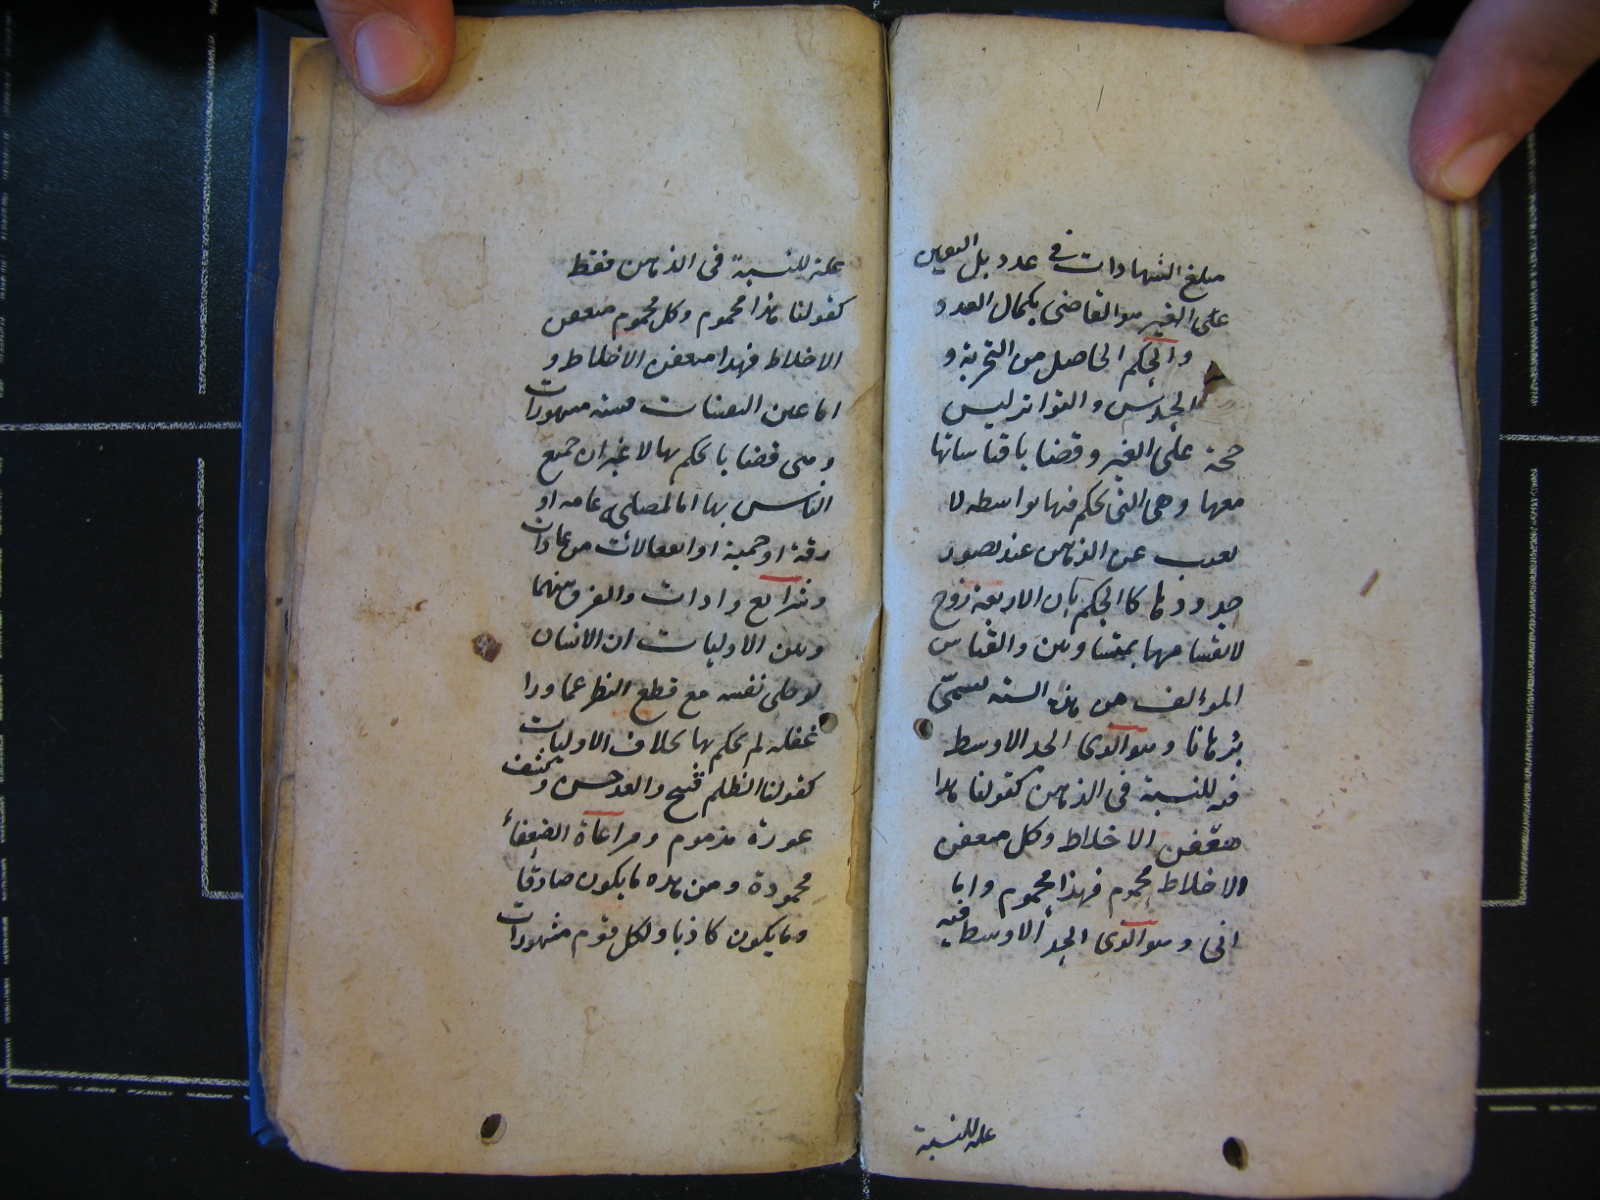 مبلغ الشهادات فى عدد بل اليقين
على الغير هو القاضى بكمال العدد
والحكم الحاصل من التجربة و
الحدس والتواتر ليس
حجة على الغير وقضايا قياساتها
معها وهى التى يحكم فيها بواسطة لا
تعزب عن الذهن عند تصور
حدودها كالحكم بان الاربعة زوج
لانقسامها بمتساويين والقياس
المؤلف من هذه الستة يسمى
برهانا وهو الذى الحد الاوسط
فيه للنسبة فى الذهن كقولنا هذا
متعفن الاخلاط وكل متعفن
الاخلاط محموم فهذا محموم واما
انى وهو الذى الحد الاوسط فيه
علة للنسبة
علة للنسبة فى الذهن فقط
كقولنا هذا محموم وكل محموم متعفن
الاخلاط فهذا متعفن الاخلاط و
اما غير اليقينيات فستة مشهورات
وهى قضايا يحكم بها لاعتراف جميع
الناس بها اما لمصلحة عامة او
رقة او حمية او انفعالات من عادات
وشرائع واداب والفرق بينها
وبين الاوليات ان الانسان
لو خلى نفسه مع قطع النظر عما ورا
عقله لم يحكم بها بخلاف الاوليات
كقولنا الظلم قبيح والعدل حسن وكشف
عورة مذموم ومراعاة الضعفاء
محمودة ومن هذه ما يكون صادقا
وما يكون كاذبا ولكل قوم مشهورات